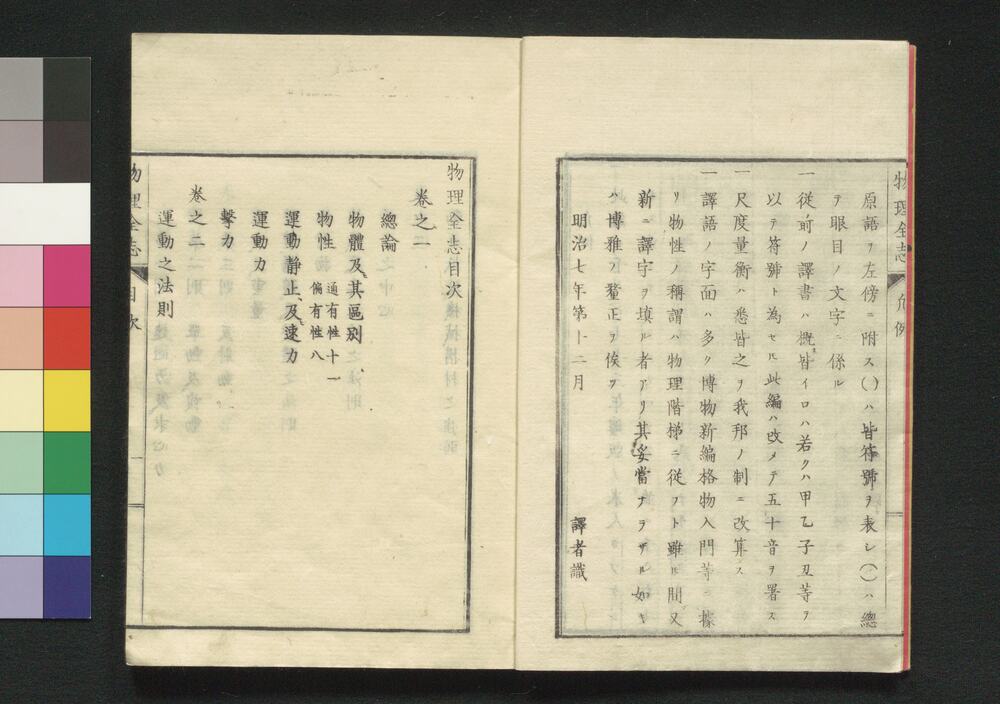 物理全志 凡例
原語ヲ左傍ニ附ス()ハ皆符號ヲ表シ()ハ總
テ眼目ノ文字ニ係ル
一從前ノ譯書ハ概皆イロハ若クハ甲乙子丑等ヲ
以テ符號ト為セㇾ𪜈此編ハ改メテ五十音ヲ署ス
一尺度量衡ハ悉皆之ヲ我邦ノ制ニ改算ス
一譯語ノ字面ハ多ク博物新編格物入門等ニ據
リ物性ノ稱謂ハ物理階梯ニ從フト雖𪜈間又
新ニ譯字ヲ填ル者アリ其妥當ナラザル如キ
ハ博雅ノ釐正ヲ俟ツ
明治七年第十二月
譯者識
物理全志目次
卷之一
總論
物體及其區別
物性 通有性十一 偏有性八
運動靜止及速力
運動力
擊力
卷之二
運動之法則
物理全志 目次 一